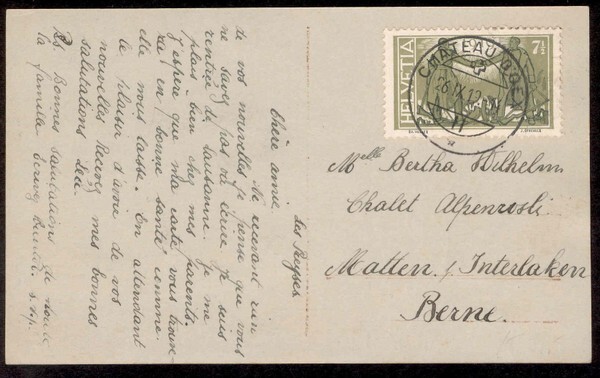 Les Reyses
Chère amie
Ne recevant rien
de vos nouvelles je pense que vous
ne savez pas où écrire. Je suis
rentrée de Lausanne. Je me
plais bien chez mes parents.
J'espère que ma carte vous trouve-
ra en bonne santé comme
elle nous laisse. En attendant
le plaisir d'avoir de vos
nouvelles Recevez mes bonnes
salutations
Bonnes salutations de toute
la famille
HELVETIA
7½
CHATEAU-D'OEX
26.IX.
Melle Bertha Wilhelm
Chalet Alpenrosli
Matten s/ Interlaken
Berne.